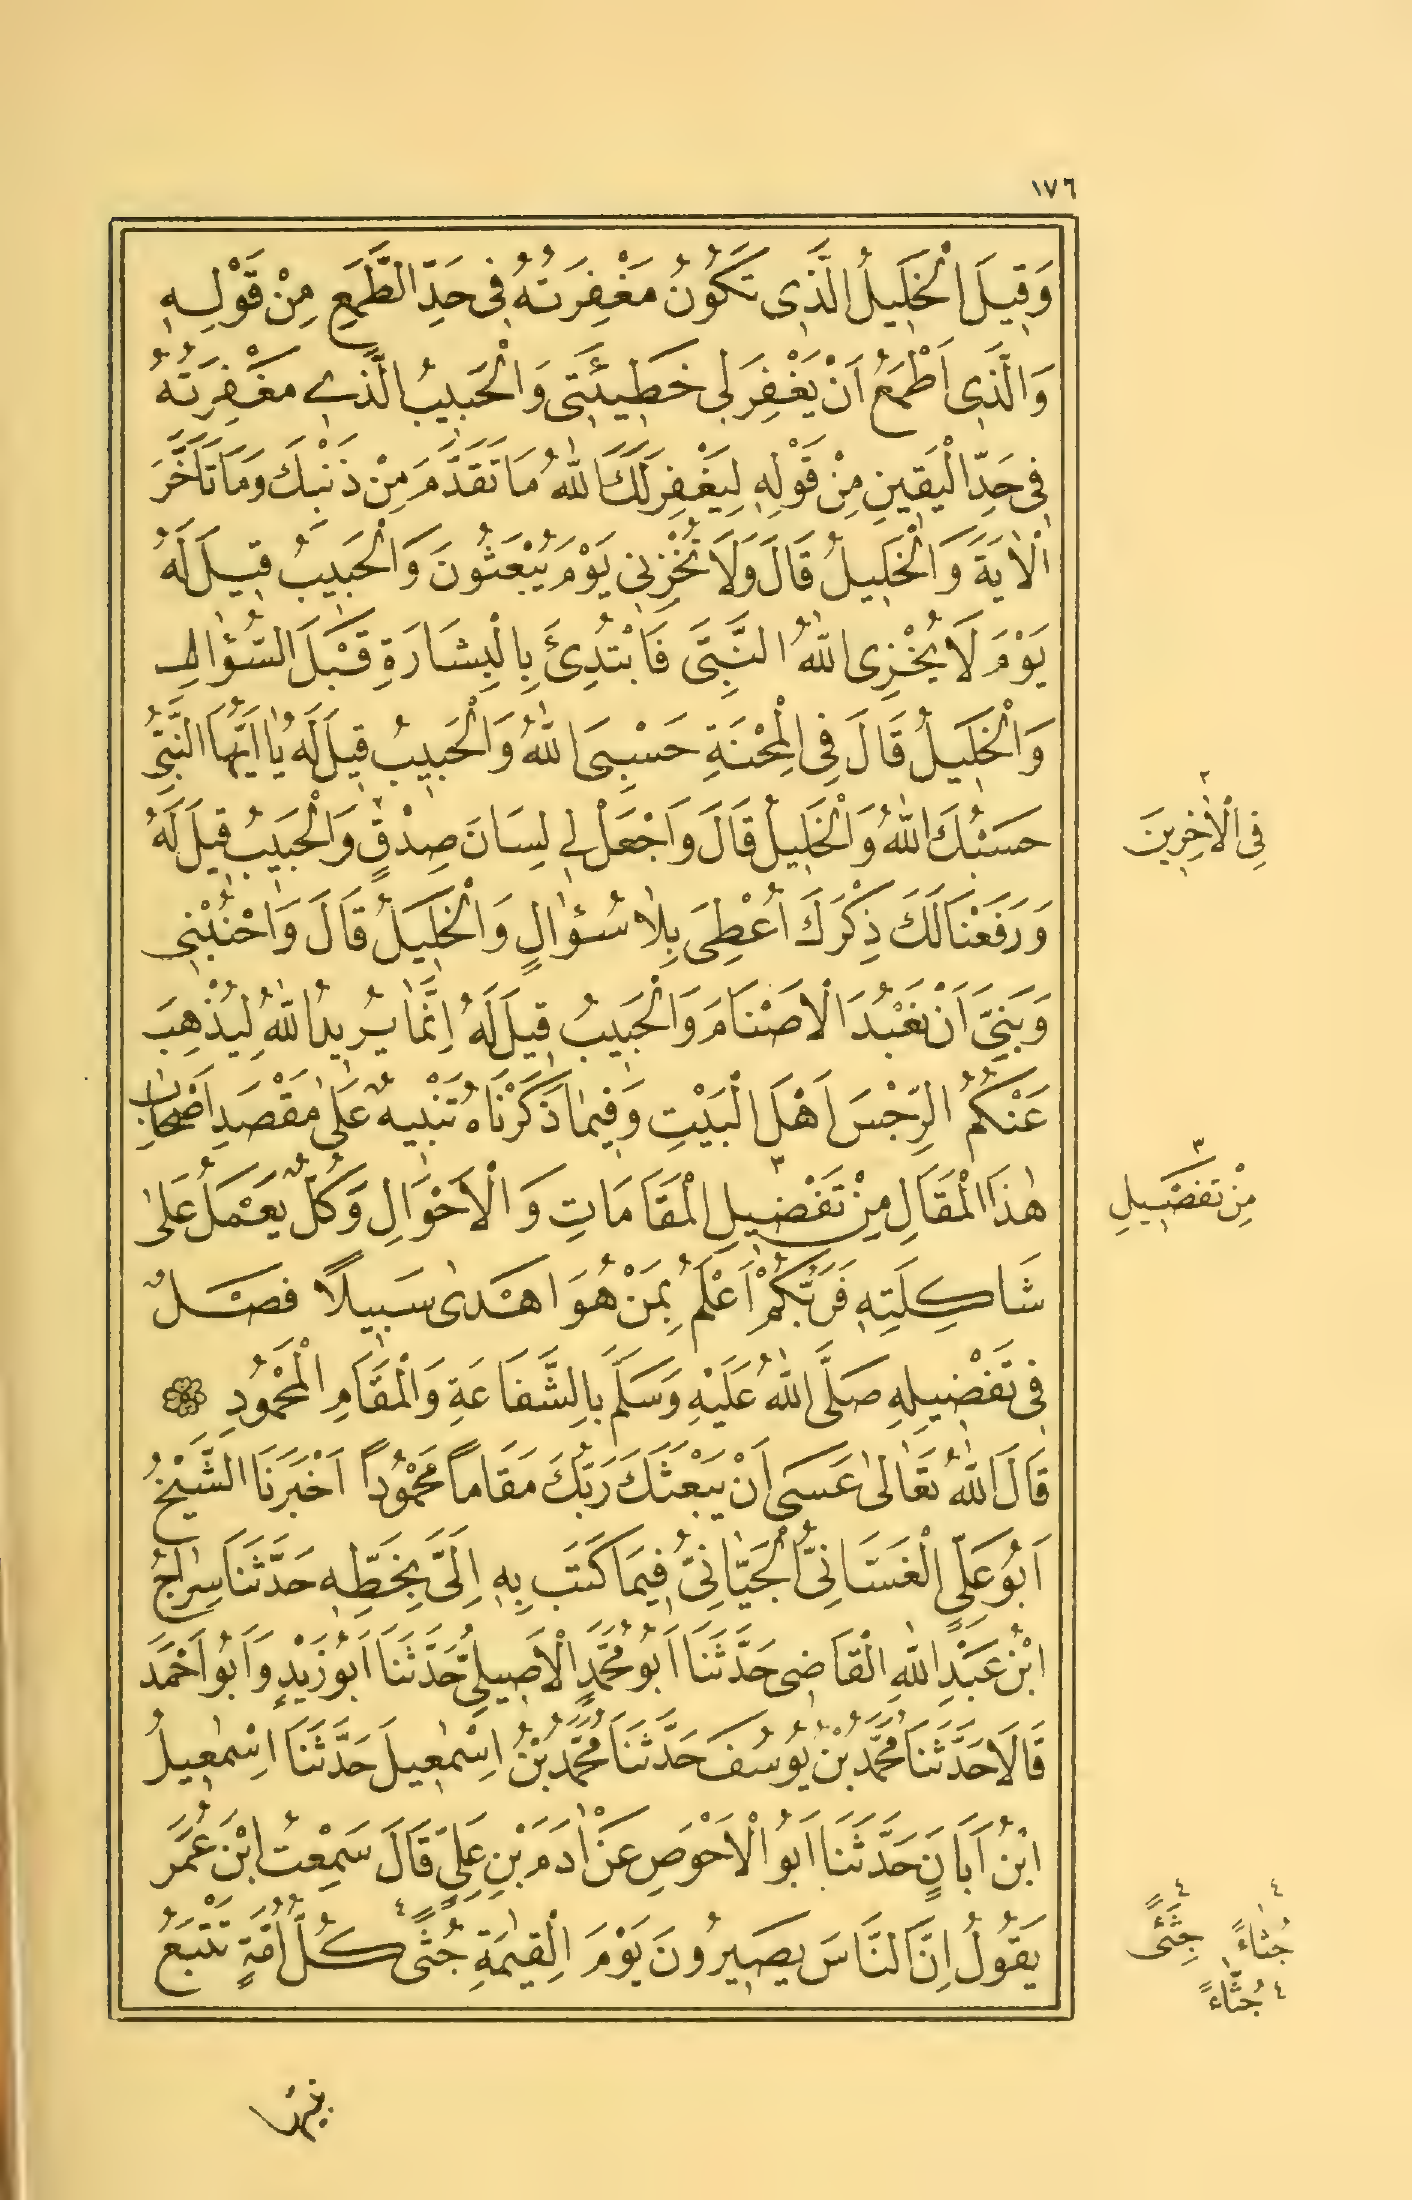 ١٧٦
وَقِيلَ الْخَلِيلُ الَّذِى تَكُونُ مَغْفِرَتُهُ فِى حَدِّ الطَّمَعِ مِنْ قَوْلِهِ
وَالَّذِى اَطْمَعُ اَنْ يَغْفِرَ لِى خَطِيئَتِى وَالْحَبِيبُ الَّذِى مَغْفِرَتُهُ
فِى حَدِّ الْيَقِينِ مِنْ قَوْلِهِ لِيَغْفِرَ لَكَ اللّٰهُ مَا تَقَدَّمَ مِنْ ذَنْبِكَ وَمَا تَاَخَّرَ
الْاٰيَةَ وَالْخَلِيلُ قَالَ وَلَا تُخْزِنِى يَوْمَ يُبْعَثُونَ وَالْحَبِيبُ قِيلَ لَهُ
يَوْمَ لَا يُخْزِى اللّٰهُ النَّبِىَّ فَابْتُدِئَ بِالْبِشَارَةِ قَبْلَ السُّؤَالِ
وَالْخَلِيلُ قَالَ فِى الْمِحْنَةِ حَسْبِىَ اللّٰهُ وَالْحَبِيبُ قِيلَ لَهُ يٰا اَيُّهَا النَّبِىُّ
حَسْبُكَ اللّٰهُ وَالْخَلِيلُ قَالَ وَاجْعَلْ لِى لِسَانَ صِدْقٍ ٢ وَالْحَبِيبُ قِيلَ لَهُ
فِى الْاٰخِرِينَ ٢
وَرَفَعْنَا لَكَ ذِكْرَكَ اُعْطِىَ بِلَا سُؤٰالٍ وَالْخَلِيلُ قَالَ وَاجْنُبْنِى
وَبَنِىَّ اَنْ نَعْبُدَ الْاَصْنَامَ وَالْحَبِيبُ قِيلَ لَهُ اِنَّمَا يُرِيدُ اللّٰهُ لِيُذْهِبَ
عَنْكُمُ الرِّجْسَ اَهْلَ الْبَيْتِ وَفِيمٰا ذَكَرْنَاهُ تَنْبِيهٌ عَلٰى مَقْصَدِ اَصْحَابِ
هٰذَا الْمَقَالِ مِنْ تَفْضِيلِ ٣ الْمَقَامَاتِ وَالْاَحْوَالِ وَكُلٌّ يَعْمَلُ عَلٰى
مِنْ تَفْضِيلِ ٣
شَاكِلَتِهِ فَرَبُّكُمْ اَعْلَمُ بِمَنْ هُوَ اَهْدٰى سَبِيلًا فَصْلٌ
فِى تَفْضِيلِهِ صَلَّى اللّٰهُ عَلَيْهِ وَسَلَّمَ بِالشَّفَاعَةِ وَالْمَقَامِ الْمَحْمُودِ
قَالَ اللّٰهُ تَعَالٰى عَسَى اَنْ يَبْعَثَكَ رَبُّكَ مَقَاماً مَحْمُوداً اَخْبَرَنَا الشَّيْخُ
اَبُو عَلِىٍّ الْغَسَّانِىُّ الْجَيَّانِىُّ فِيمَا كَتَبَ بِهِ اِلَىَّ بِخَطِّهِ حَدَّثَنَا سِرَاجُ
ابْنُ عَبْدِ اللّٰهِ الْقَاضِى حَدَّثَنَا اَبُو مُحَمَّدٍ الْاَصِيلِىُّ حَدَّثَنَا اَبُو زَيْدٍ وَاَبُو اَحْمَدَ
قَالَا حَدَّثَنَا مُحَمَّدُ بْنُ يُوسُفَ حَدَّثَنَا مُحَمَّدُ بْنُ اِسْمٰعِيلَ حَدَّثَنَا اِسْمٰعِيلُ
ابْنُ اَبَانٍ حَدَّثَنَا اَبُو الْاَحْوَصِ عَنْ اٰدَمَ بْنِ عَلِىٍّ قَالَ سَمِعْتُ ابْنَ عُمَرَ
يَقُولُ اِنَّ النَّاسَ يَصِيرُونَ يَوْمَ الْقِيٰمَةِ جُثًى ٤ كُلُّ اُمَّةٍ تَتْبَعُ
جُثَاءً ٤ جِثًى ٤
٤ جُثَّاءً
نبيها